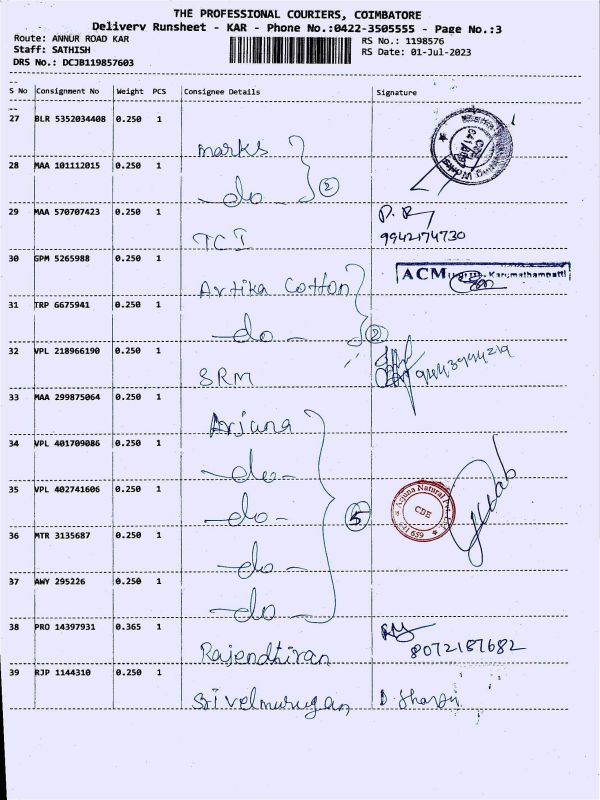 THE PROFESSIONAL COURIERS, COIMBATORE
Delivery Runsheet - KAR - Phone No.:0422-3505555 - Page No.:3
Route: ANNUR ROAD KAR RS No.: 1198576
Staff: SATHISH RS Date: 01-Jul-2023
DRS No.: DCJB119857603
S No Consignment No Weight PCS Consignee Details Signature
27 BLR 5352034408 0.250 1 marks
28 MAA 101112015 0.250 1 -do- 2
29 MAA 570707423 0.250 1 TCI 9942174730
30 GPM 5265988 0.250 1 Artika Cotton ACM Karumathampatti
31 TRP 6675941 0.250 1 -do- 2
32 VPL 218966190 0.250 1 SRM 9443944219
33 MAA 299875064 0.250 1 Arjuna
34 VPL 401709086 0.250 1 -do-
35 VPL 402741606 0.250 1 -do- 5 Arjuna Natural Pvt. Ltd. CBE 641 659
36 MTR 3135687 0.250 1 -do-
37 AWY 295226 0.250 1 -do-
38 PRO 14397931 0.365 1 Rajendhiran 8072187682
39 RJP 1144310 0.250 1 Srivelmurugan